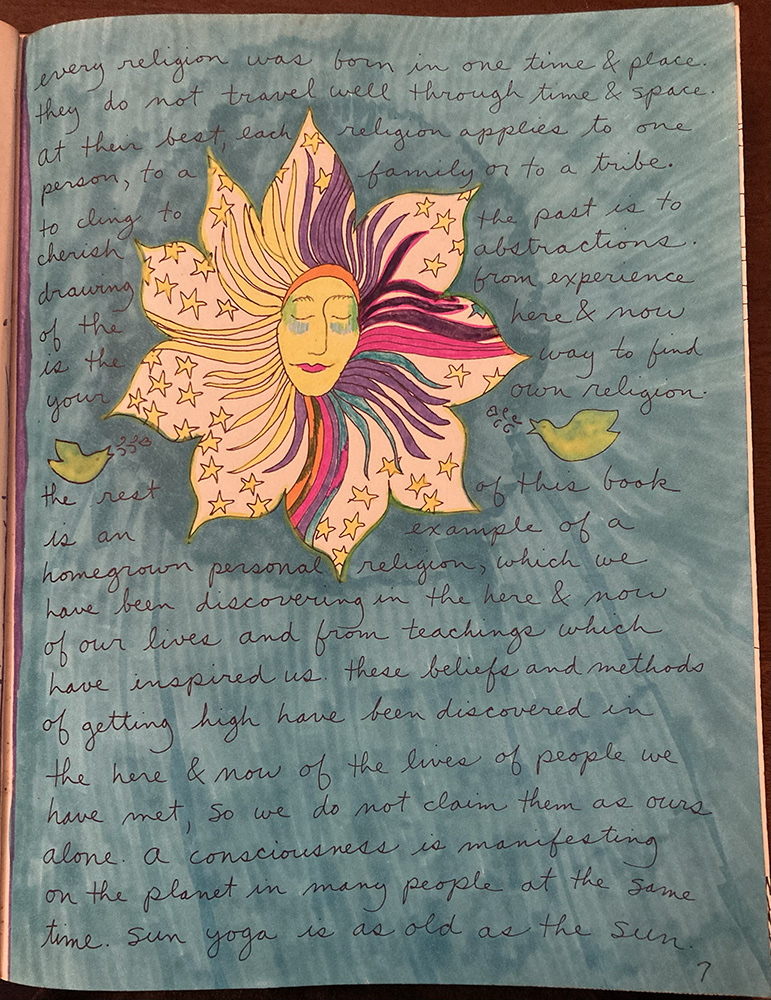 every religion was born in one time & place.
they do not travel well through time & space.
at their best, each religion applies to one
person, to a family or to a tribe.
to cling to the past is to
cherish abstractions.
drawing from experience
of the here & now
is the way to find
your own religion.
the rest of this book
is an example of a
homegrown personal religion, which we
have been discovering in the here & now
of our lives and from teachings which
have inspired us. these beliefs and methods
of getting high have been discovered in
the here & now of the lives of people we
have met, so we do not claim them as ours
alone. a consciousness is manifesting
on the planet in many people at the same
time. sun yoga is as old as the sun.
7